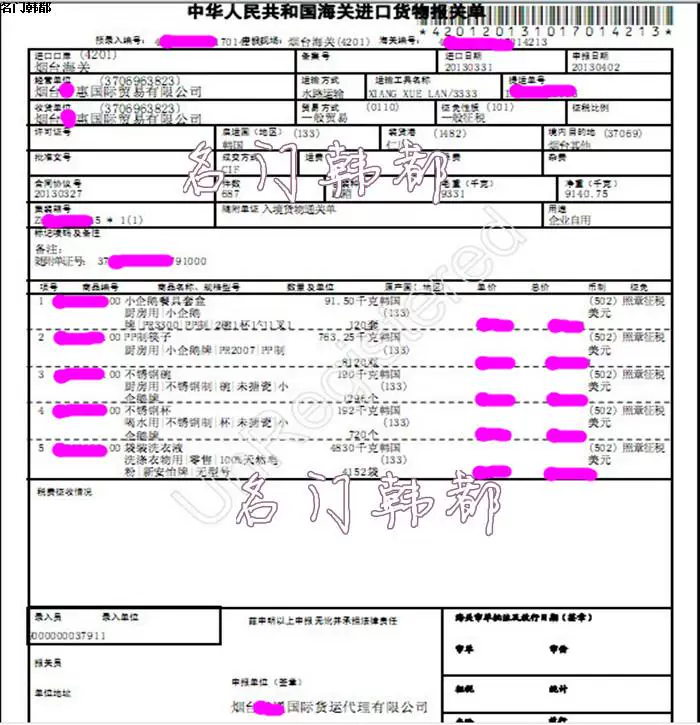 名门韩都
中华人民共和国海关进口货物报关单
*420120131017014213*
预录入编号: 申报现场: 烟台海关(4201) 海关编号: 14213
进口口岸 (4201) 备案号 进口日期 申报日期
烟台海关 20130331 20130402
经营单位 (3706963823) 运输方式 运输工具名称 提运单号
烟台 惠国际贸易有限公司 水路运输 XIANG XUE LAN/3333
收货单位 (3706963823) 贸易方式 (0110) 征免性质 (101) 征税比例
烟台 惠国际贸易有限公司 一般贸易 一般征税
许可证号 起运国 (地区) (133) 装货港 (1482) 境内目的地 (37069)
韩国 烟台其他
批准文号 成交方式 运费 杂费
CIF
合同协议号 件数 毛重 (千克) 净重 (千克)
20130327 687 9331 9140.75
名门韩都
集装箱号 随附单证 入境货物通关单 用途
5 * 1(1) 企业自用
标记唛码及备注
备注:
随附单证号: 37 791000
项号 商品编号 商品名称、规格型号 数量及单位 原产国(地区) 单价 总价 币制 征免
1 00 小企鹅餐具套盒 91.50千克韩国 (502) 照章征税
厨房用|小企鹅 (133) 美元
牌|PR3300|PP制|2碗1杯1勺1叉1 120套
2 00 PP制筷子 763.25千克韩国 (502) 照章征税
厨房用|小企鹅牌|PR2007|PP制 (133) 美元
8120双
3 00 不锈钢碗 190千克韩国 (502) 照章征税
厨房用|不锈钢制|碗|未搪瓷|小 (133) 美元
企鹅牌 1296个
4 00 不锈钢杯 192千克韩国 (502) 照章征税
喝水用|不锈钢制|杯|未搪瓷|小 (133) 美元
企鹅牌 720个
5 00 袋装洗衣液 4830千克韩国 (502) 照章征税
洗涤衣物用|零售|100%天然皂 (133) 美元
粉|新安怡牌|无型号 4152袋
UnRegistered
税费征收情况
名门韩都
录入员 录入单位 兹申明以上申报无讹并承担法律责任 海关审单批注及放行日期(签章)
0000000037911
审单 审价
报关员
申报单位 (签章) 征税 统计
单位地址
烟台 国际货运代理有限公司